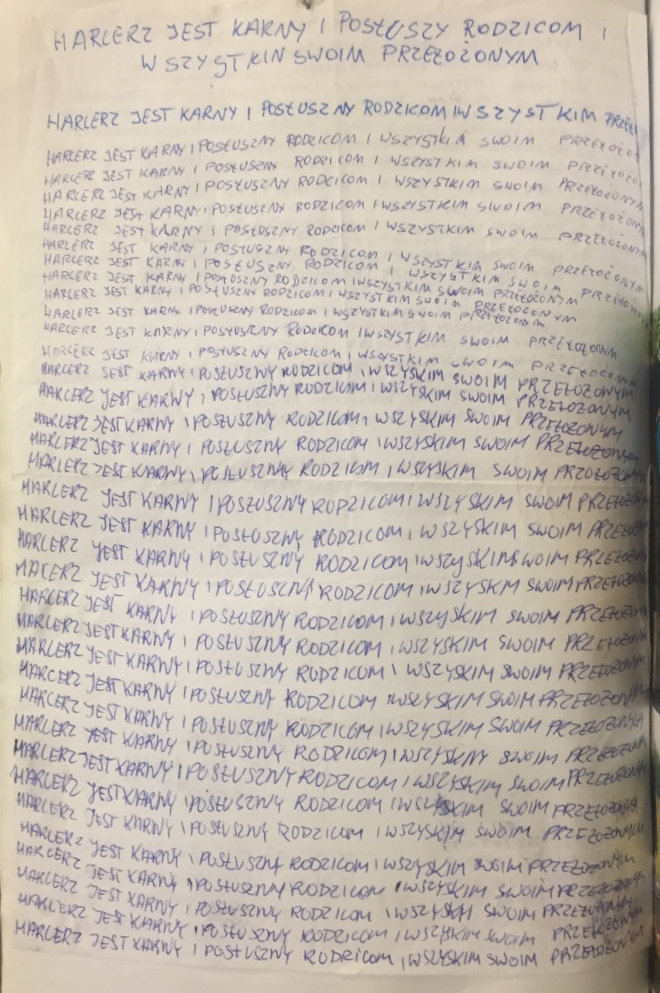 HARCERZ JEST KARNY I POSŁUSZY RODZICOM I
WSZYSTKIN SWOIM PRZEŁOŻONYM
HARCERZ JEST KARNY I POSŁUSZNY RODZICOM I WSZYSTKIM PRZEŁ
HARCERZ JEST KARNY I POSŁUSZNY RODZICOM I WSZYSTKIM SWOIM PRZEŁOŻO
HARCERZ JEST KARNY I POSŁUSZNY RODZICOM I WSZYSTKIM SWOIM PRZEŁOŻO
HARCERZ JEST KARNY I POSŁUSZNY RODZICOM I WSZYSTKIM SWOIM PRZEŁOŻONYM
HARCERZ JEST KARNY I POSŁUSZNY RODZICOM I WSZYSTKIM SWOIM PRZEŁOŻONY
HARCERZ JEST KARNY I POSŁUSZNY RODZICOM I WSZYSTKIM SWOIM PRZEŁOŻONYM
HARCERZ JEST KARNY I POSŁUSZNY RODZICOM I WSZYSTKIM SWOIM PRZEŁOŻONYM
HARCERZ JEST KARNY I POSŁUSZNY RODZICOM I WSZYSTKIM SWOIM PRZEŁOŻONYM
HARCERZ JEST KARNY I POSŁUSZNY RODZICOM I WSZYSTKIM SWOIM PRZEŁOŻONYM
HARCERZ JEST KARNY I POSŁUSZNY RODZICOM I WSZYSTKIM SWOIM PRZEŁOŻONYM
HARCERZ JEST KARNY I POSŁUSZNY RODZICOM I WSZYSTKIM SWOIM PRZEŁOŻONYM
HARCERZ JEST KARNY I POSŁUSZNY RODZICOM I WSZYSTKIM SWOIM PRZEŁOŻONYM
HARCERZ JEST KARNY I POSŁUSZNY RODZICOM I WSZYSTKIM SWOIM PRZEŁOŻONYM
HARCERZ JEST KARNY I POSŁUSZNY RODZICOM I WSZYSKIM SWOIM PRZEŁOŻONYM
HARCERZ JEST KARNY I POSŁUSZNY RODZICOM I WSZYSKIM SWOIM PRZEŁOŻONYM
HARCERZ JEST KARNY I POSŁUSZNY RODZICOM I WSZYSKIM SWOIM PRZEŁOŻONYM
HARCERZ JEST KARNY I POSŁUSZNY RODZICOM I WSZYSKIM SWOIM PRZEŁOŻONYM
HARCERZ JEST KARNY I POSŁUSZNY RODZICOM I WSZYSKIM SWOIM PRZOŁOŻONYM
HARCERZ JEST KARNY I POSŁUSZNY RODZICOM I WSZYSKIM SWOIM PRZEŁOŻONYM
HARCERZ JEST KARNY I POSŁOSZNY RODZICOM I WSZYSKIM SWOIM PRZEŁOŻONY
HARCERZ JEST KARNY I POSŁUSZNY RODZICOM I WSZYSKIM SWOIM PRZEŁOŻONY
HACERZ JEST KARNY I POSŁUSCNY RODZICOM I WSZYSKIM SWOIM PRZEŁOŻONYM
HARCERZ JEST KARNY I POSŁUSZNY RODZICOM I WSZYSKIM SWOIM PRZEŁOŻONYM
HARCERZ JEST KARNY I POSŁUSZNY RODZICOM I WSZYSKIM SWOIM PRZEŁOŻONYM
HARCERZ JEST KARNY I POSŁUSZNY RODZICOM I WSZYSKIM SWOIM PRZEŁOŻONYM
HARCERZ JEST KARNY I POSŁUSZNY RODZICOM I WSZYSKIM SWOIM PRZEŁOŻONYM
HARCERZ JEST KARNY I POSŁUSZNY RODZICOM I WSZYSKIM SWOIM PRZEŁOŻONYM
HARCERZ JEST KARNY I POSŁUSZNY RODZICOM I WSZYSKNY SWOIM PRZEŁOŻONYM
HARCERZ JEST KARNY I POSŁUSZNY RODZICOM I WSZYSKIM SWOIM PRZEŁOŻONYM
HARCERZ JEST KARNY I POSŁUSZNY RODZICOM I WSZYSKIM SWOIM PRZEŁOŻONYM
HARCERZ JEST KARNY I POSŁUSZNY RODZICOM I WSZYSKIM SWOIM PRZEŁOŻONYM
HARCERZ JEST KARNY I POSŁUSZNY RODZICOM I WSZYSKIM SWOIM PRZEŁOŻONYM
HARCERZ JEST KARNY I POSŁUSZNY RODZICOM I WSZYSKIM SWOIM PRZEŁOŻONYM
HARCERZ JEST KARNY I POSŁUSZNY RODZICOM I WSZYSKIM SWOIM PRZEŁOŻONYM
HARCERZ JEST KARNY I POSŁUSZNY RODZICOM I WSZYSKIM SWOIM PRZEŁOŻONYM
HARCERZ JEST KARNY I POSŁUSZNY RODZICOM I WSZYSKIM SWOIM PRZEŁOŻONYM